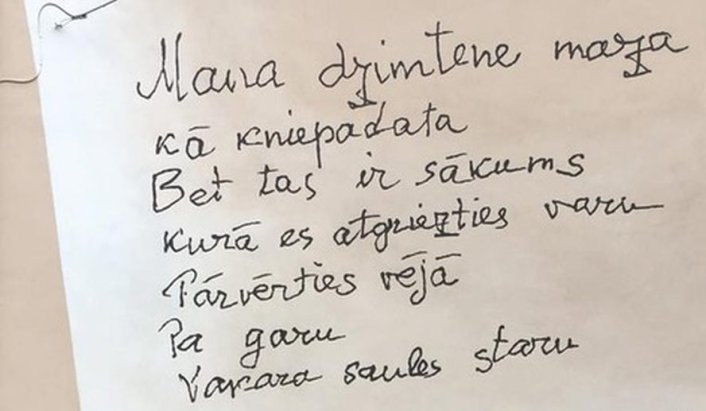 Mana dzimtene maza
kā kniepadata
Bet tas ir sākums
kurā es atgriezties varu
Pārvērties vējā
Pa garu
Vakara saules staru